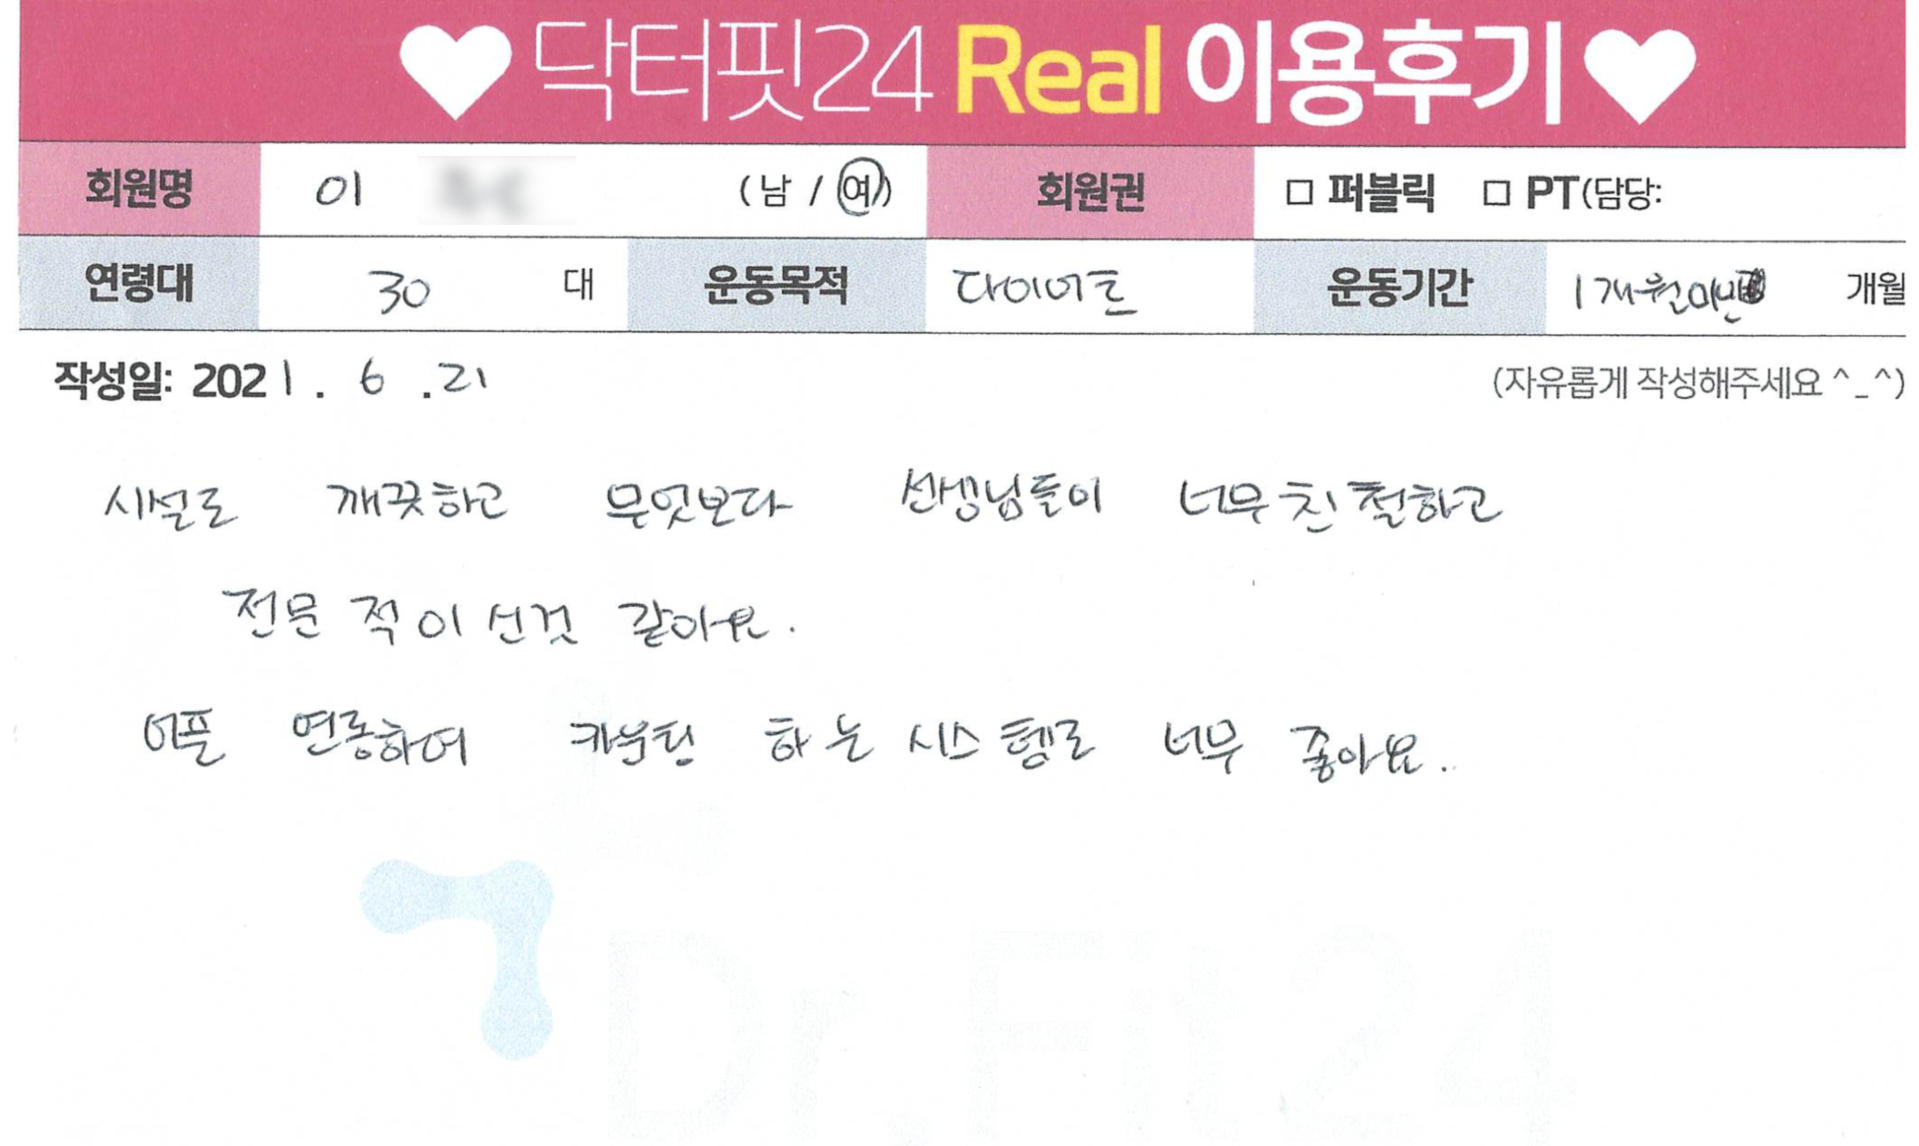 닥터핏24 Real 이용후기
회원명 이 (남 / 여) 회원권 □ 퍼블릭 □ PT(담당:
연령대 30 대 운동목적 다이어트 운동기간 1개월미만 개월
작성일: 2021. 6 .21 (자유롭게 작성해주세요 ^_^)
시설도 깨끗하고 무엇보다 선생님들이 너무 친절하고
전문적이신것 같아요.
어플 연동하여 카운팅 하는 시스템도 너무 좋아요.
Dr.Fit24